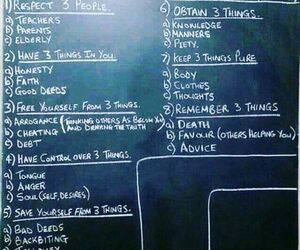 1) RESPECT 3 PEOPLE.
a) TEACHERS
b) PARENTS
c) ELDERLY
2) HAVE 3 THINGS IN YOU.
a) HONESTY
b) FAITH
c) GOOD DEEDS
3) FREE YOURSELF FROM 3 THINGS.
a) ARROGANCE (THINKING OTHERS AS BELOW YOU
AND DENYING THE TRUTH)
b) CHEATING
c) DEBT
4) HAVE CONTROL OVER 3 THINGS.
a) TONGUE
b) ANGER
c) SOUL (SELF, DESIRES)
5) SAVE YOURSELF FROM 3 THINGS.
a) BAD DEEDS
b) BACKBITING
6) OBTAIN 3 THINGS.
a) KNOWLEDGE
b) MANNERS
c) PIETY.
7) KEEP 3 THINGS PURE
a) BODY
b) CLOTHES
c) THOUGHTS
8) REMEMBER 3 THINGS
a) DEATH
b) FAVOUR (OTHERS HELPING YOU)
c) ADVICE